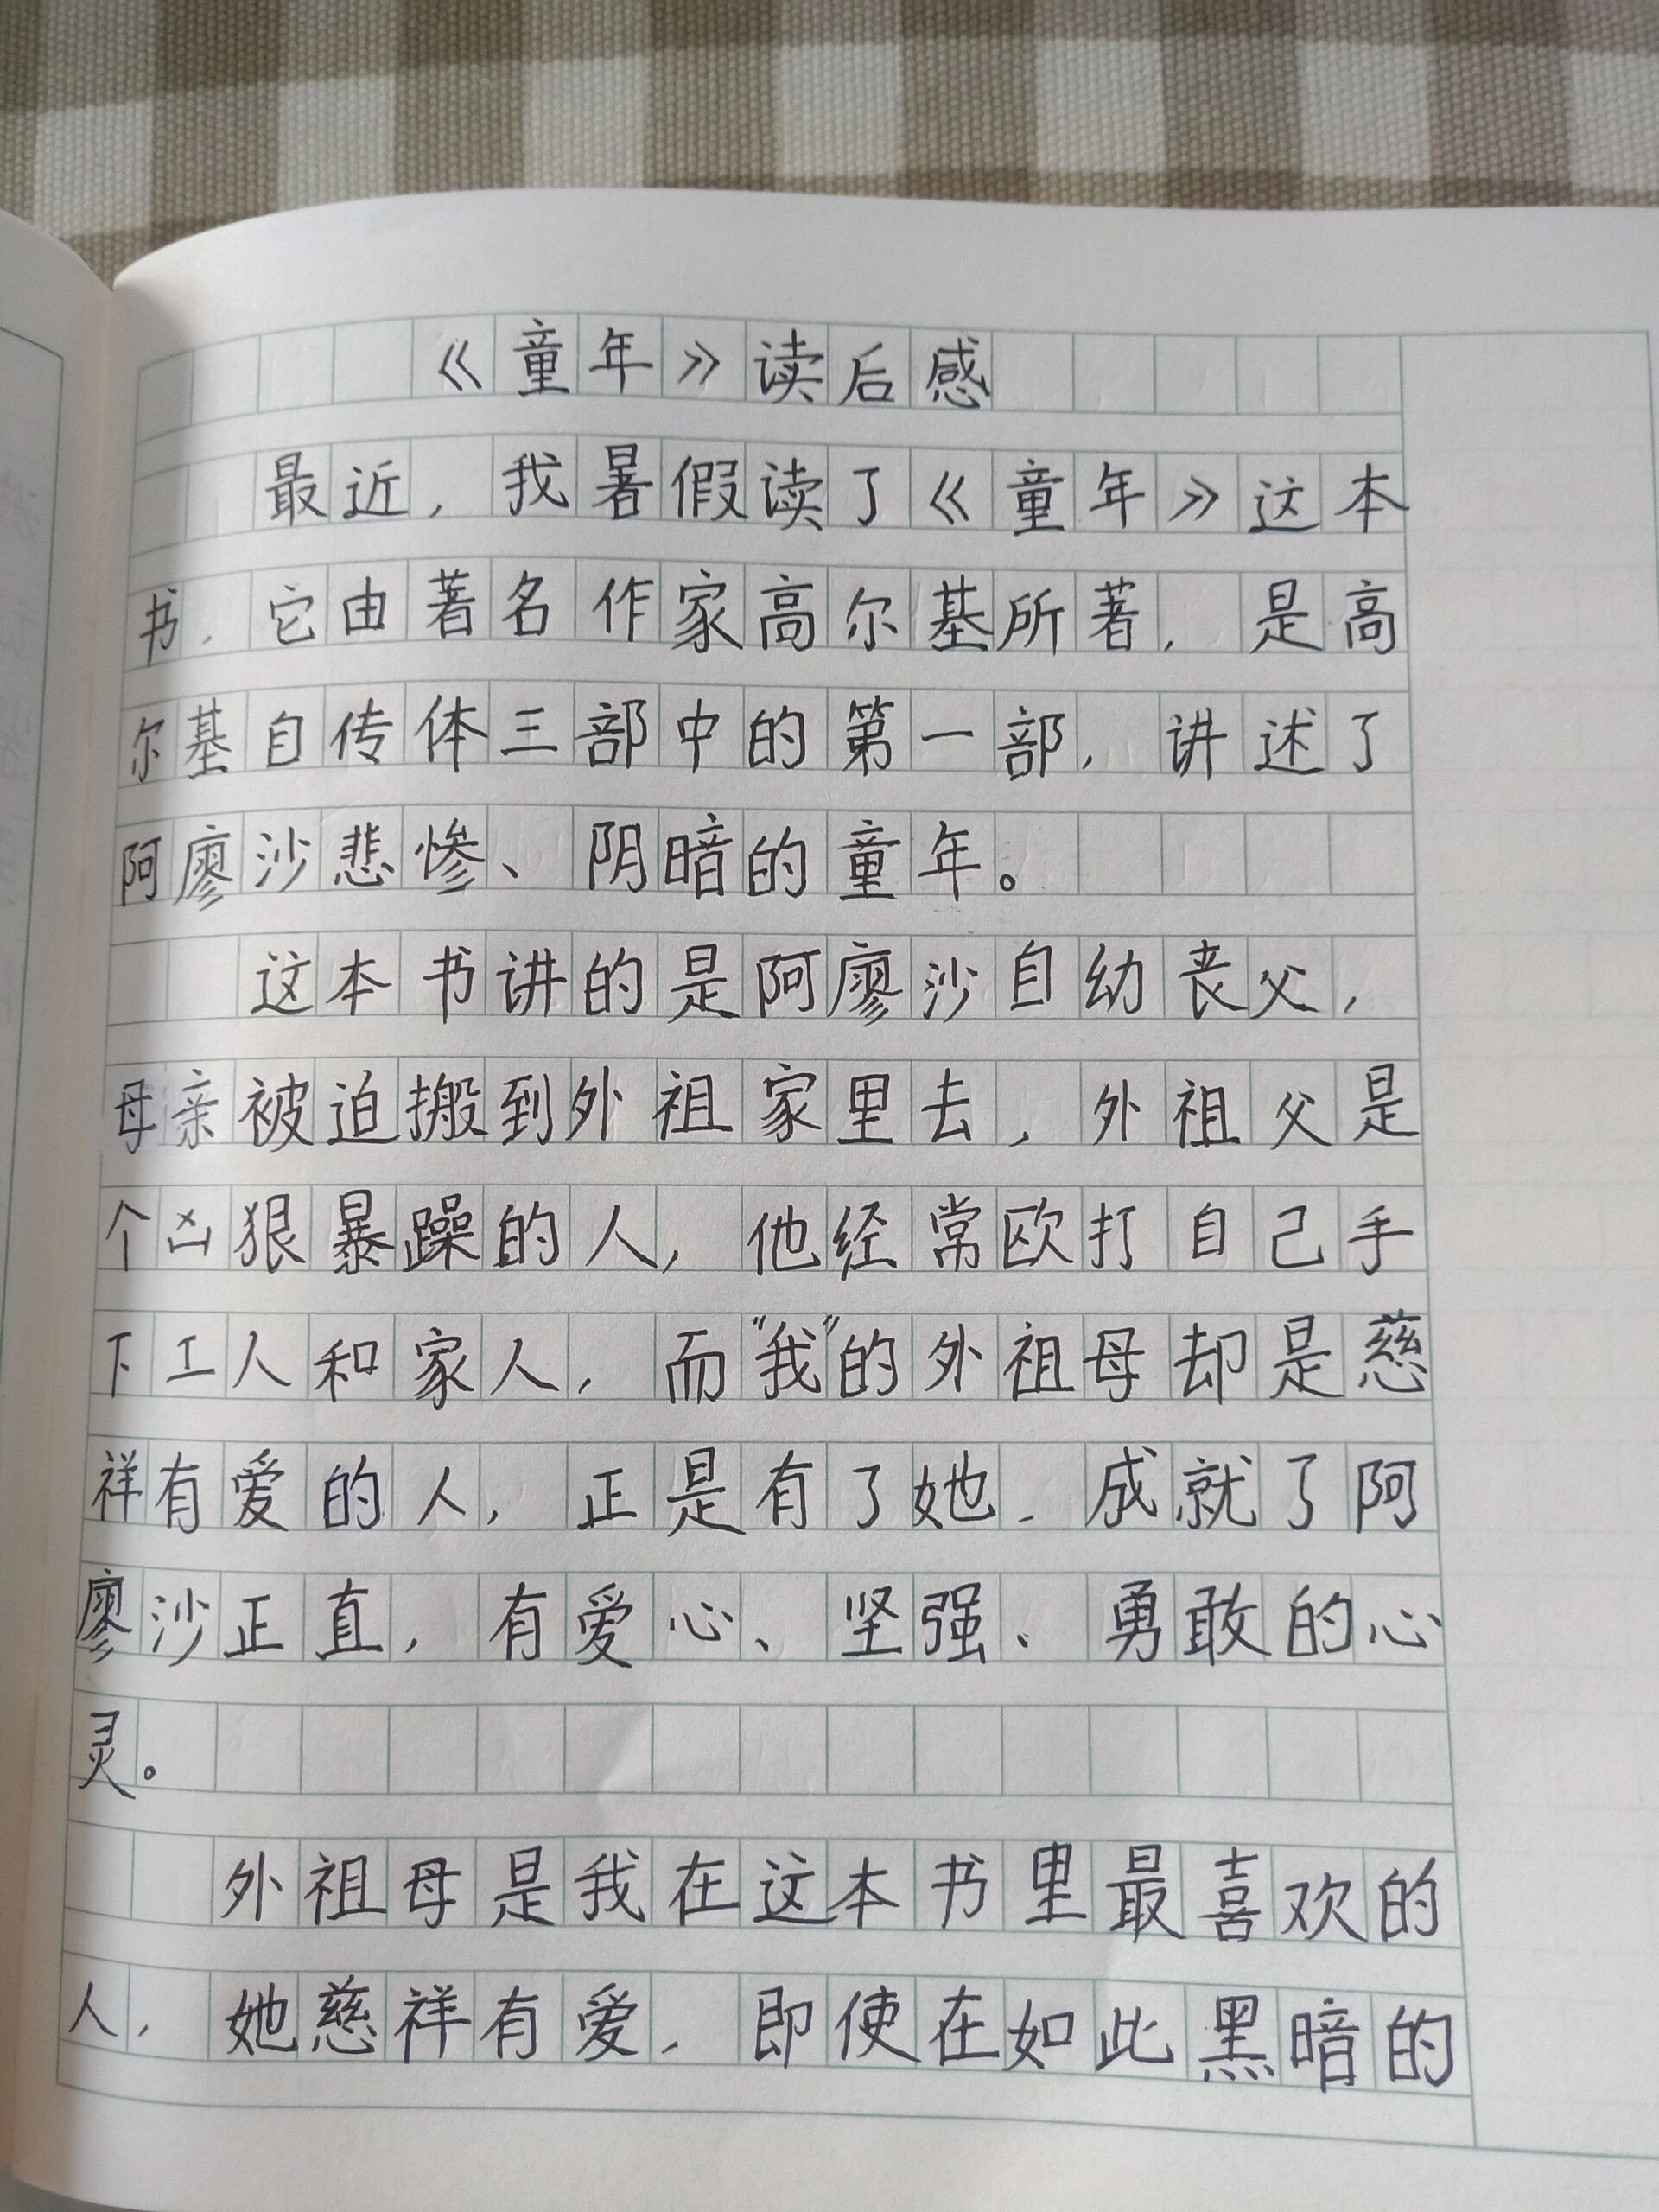 《童年》读后感
最近,我暑假读了《童年》这本
书,它由著名作家高尔基所著,是高
尔基自传体三部中的第一部,讲述了
阿廖沙悲惨、阴暗的童年。
这本书讲的是阿廖沙自幼丧父,
母亲被迫搬到外祖家里去,外祖父是
个凶狠暴躁的人,他经常欧打自己手
下工人和家人,而“我”的外祖母却是慈
祥有爱的人,正是有了她,成就了阿
廖沙正直,有爱心、坚强、勇敢的心
灵。
外祖母是我在这本书里最喜欢的
人,她慈祥有爱,即使在如此黑暗的